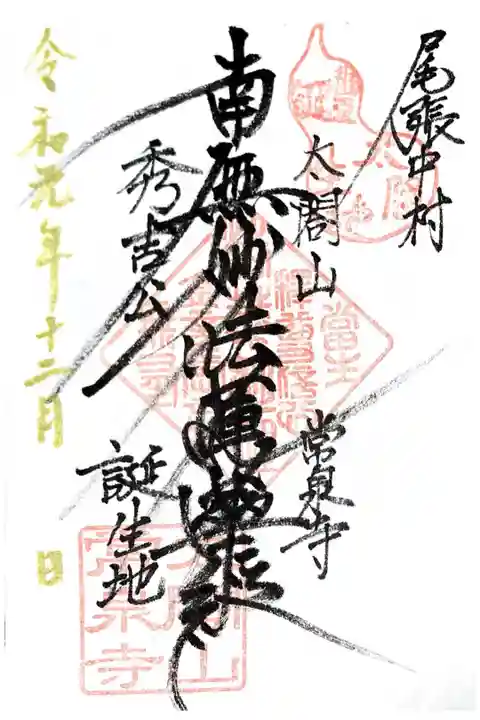 尾張中村
太閤山
常泉寺
南無妙法蓮華経
秀吉公
誕生地
令和元年十二月 日
太閤山
常泉寺